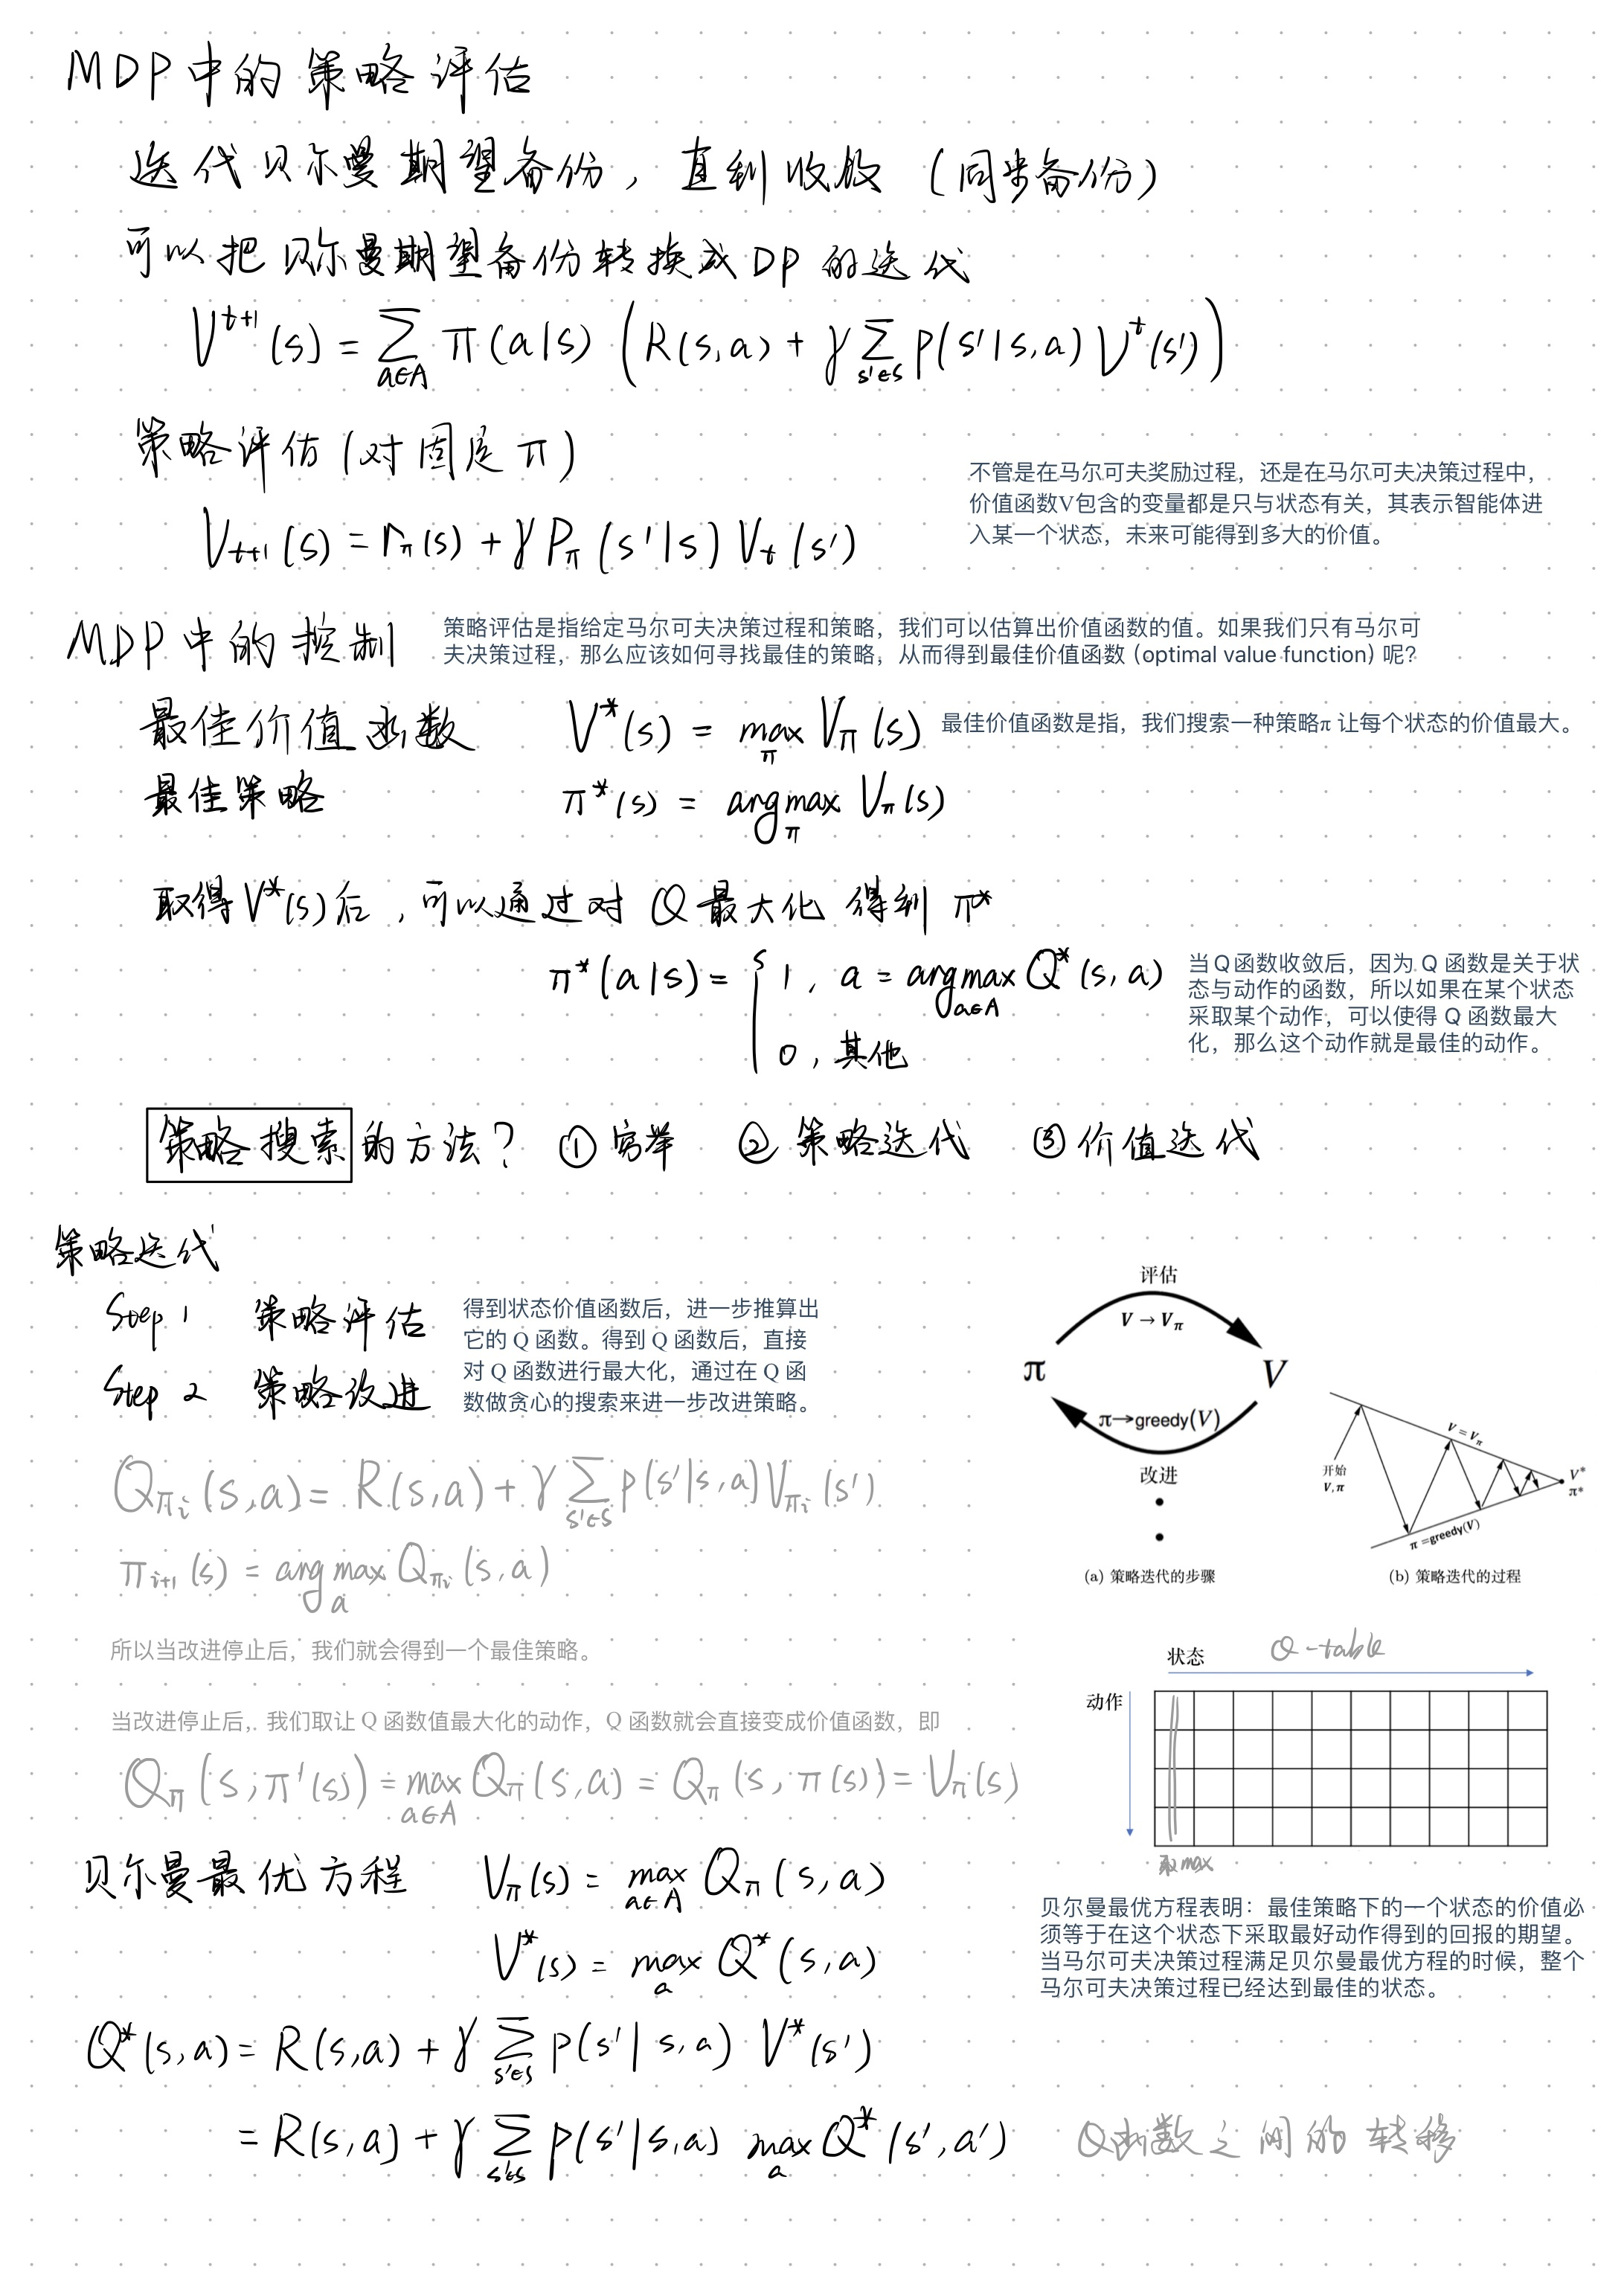 MDP中的策略评估
迭代贝尔曼期望备份，直到收敛（同步备份）
可以把贝尔曼期望备份转换成DP的迭代
V^{t+1}(s) = ∑_{a∈A} π(a|s) (R(s,a) + γ ∑_{s'∈S} p(s'|s,a) V^t(s'))
策略评估(对固定π)
V_{t+1}(s) = r_π(s) + γ P_π(s'|s) V_t(s')
不管是在马尔可夫奖励过程，还是在马尔可夫决策过程中，
价值函数V包含的变量都是只与状态有关，其表示智能体进
入某一个状态，未来可能得到多大的价值。
MDP中的控制
策略评估是指给定马尔可夫决策过程和策略，我们可以估算出价值函数的值。如果我们只有马尔可
夫决策过程，那么应该如何寻找最佳的策略，从而得到最佳价值函数（optimal value function）呢？
最佳价值函数 V*(s) = max_π V_π(s)
最佳价值函数是指，我们搜索一种策略π 让每个状态的价值最大。
最佳策略 π*(s) = argmax_π V_π(s)
取得V*(s)后，可以通过对Q最大化得到π*
π*(a|s) = { 1, a = argmax_{a∈A} Q*(s,a)
0, 其他
当Q函数收敛后，因为 Q 函数是关于状
态与动作的函数，所以如果在某个状态
采取某个动作，可以使得 Q 函数最大
化，那么这个动作就是最佳的动作。
策略搜索的方法？ ①穷举 ②策略迭代 ③价值迭代
策略迭代
Step 1 策略评估
Step 2 策略改进
得到状态价值函数后，进一步推算出
它的 Q 函数。得到 Q 函数后，直接
对 Q 函数进行最大化，通过在 Q 函
数做贪心的搜索来进一步改进策略。
Q_{π_i}(s,a) = R(s,a) + γ ∑_{s'∈S} p(s'|s,a) V_{π_i}(s')
π_{i+1}(s) = argmax_a Q_{π_i}(s,a)
评估
V → V_π
π V
π→greedy(V)
改进
(a) 策略迭代的步骤
V = V_π
开始
V, π
V*
π*
π =greedy(V)
(b) 策略迭代的过程
所以当改进停止后，我们就会得到一个最佳策略。
当改进停止后，我们取让 Q 函数值最大化的动作，Q 函数就会直接变成价值函数，即
Q_π(s,π'(s)) = max_{a∈A} Q_π(s,a) = Q_π(s,π(s)) = V_π(s)
状态 Q-table
动作
取max
贝尔曼最优方程 V_π(s) = max_{a∈A} Q_π(s,a)
V*(s) = max_a Q*(s,a)
贝尔曼最优方程表明：最佳策略下的一个状态的价值必
须等于在这个状态下采取最好动作得到的回报的期望。
当马尔可夫决策过程满足贝尔曼最优方程的时候，整个
马尔可夫决策过程已经达到最佳的状态。
Q*(s,a) = R(s,a) + γ ∑_{s'∈S} p(s'|s,a) V*(s')
= R(s,a) + γ ∑_{s'∈S} p(s'|s,a) max_a Q*(s',a')
Q函数之间的转移